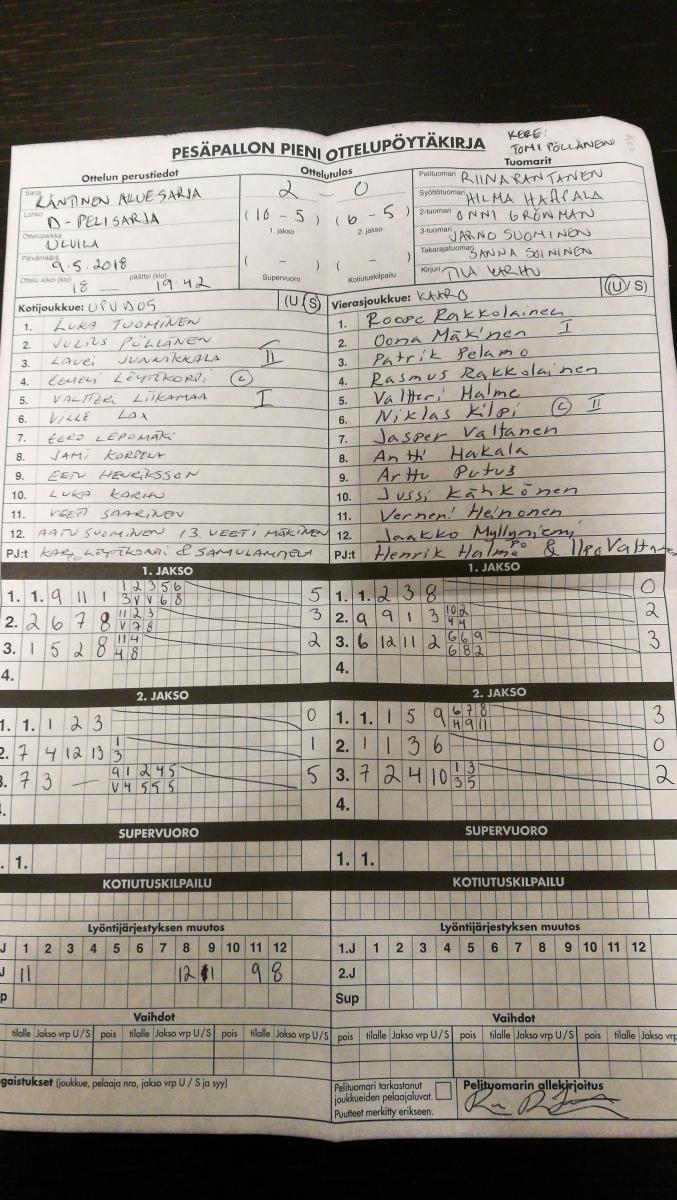 PESÄPALLON PIENI OTTELUPÖYTÄKIRJA
KERE: TOMI PÖLLÄNEN
Ottelun perustiedot
Sarja LÄNTINEN ALUESARJA
Lohko D-PELISARJA
Ottelupaikka ULVILA
Päivämäärä 9.5.2018
Ottelu alkoi (klo) 18 — päättyi (klo) 19.42
Ottelutulos
2 - 0
(10 - 5) (6 - 5)
1. jakso 2. jakso
( - ) ( - )
Supervuoro Kotiutuskilpailu
Tuomarit
Pelituomari RIINA RANTANEN
Syöttötuomari HILMA HAAPALA
2-tuomari ONNI GRÖNMAN
3-tuomari JARNO SUOMINEN
Takarajatuomari SANNA SOININEN
Kirjuri TIIA KARHU
Kotijoukkue: UPVD05 (U/S)
1. LUKA TUOMINEN
2. JULIUS PÖLLÄNEN
3. LAURI JUNNIKKALA II
4. EEMELI LÖYTÖKORPI C
5. VALTTERI LIIKAMAA I
6. VILLE LAX
7. EERO LEPOMÄKI
8. JAMI KORPELA
9. EETU HENRIKSSON
10. LUKA KARHU
11. VEETI SAARINEN
12. AATU SUOMINEN 13. VEETI MÄKINEN
PJ:t KARI LÖYTÖKORPI & SAMU LAMMELA
Vierasjoukkue: KAARO (U/S)
1. Roope Rakkolainen
2. Oona Mäkinen I
3. Patrik Pelamo
4. Rasmus Rakkolainen
5. Valtteri Halme
6. Niklas Kilpi C II
7. Jasper Valtanen
8. Antti Hakala
9. Arttu Putus
10. Jussi Kähkönen
11. Verneri Heinonen
12. Jaakko Myllyniemi
PJ:t Henrik Halme & Ilpo Valtanen
1. JAKSO
1. 1. 9 11 1 1 2 3 5 6 5
3 V V 6 8
2. 2 6 7 8 11 2 3 3
V 7 8
3. 1 5 2 8 11 4 2
4 8
4.
1. JAKSO
1. 1. 2 3 8 0
2. 9 9 1 3 10 2 2
4 4
3. 6 12 11 2 6 6 9 3
6 8 2
4.
2. JAKSO
1. 1. 1 2 3 0
2. 7 4 12 13 1 1
3
3. 7 3 — 9 1 2 4 5 5
V 4 5 5 5
2. JAKSO
1. 1. 1 5 9 6 7 8 3
4 9 11
2. 1 1 3 6 0
3. 7 2 4 10 1 3 2
3 5
4.
SUPERVUORO
1.
SUPERVUORO
1. 1.
KOTIUTUSKILPAILU
KOTIUTUSKILPAILU
Lyöntijärjestyksen muutos
J 1 2 3 4 5 6 7 8 9 10 11 12
J 11 12 1 9 8
p
Lyöntijärjestyksen muutos
1.J 1 2 3 4 5 6 7 8 9 10 11 12
2.J
Sup
Vaihdot
tilalle Jakso vrp U/S pois tilalle Jakso vrp U/S pois tilalle Jakso vrp U/S
Vaihdot
pois tilalle Jakso vrp U/S pois tilalle Jakso vrp U/S pois tilalle Jakso vrp
gaistukset (joukkue, pelaaja nro, jakso vrp U/S ja syy)
Pelituomari tarkastanut
joukkueiden pelaajaluvat.
Puutteet merkitty erikseen.
Pelituomarin allekirjoitus